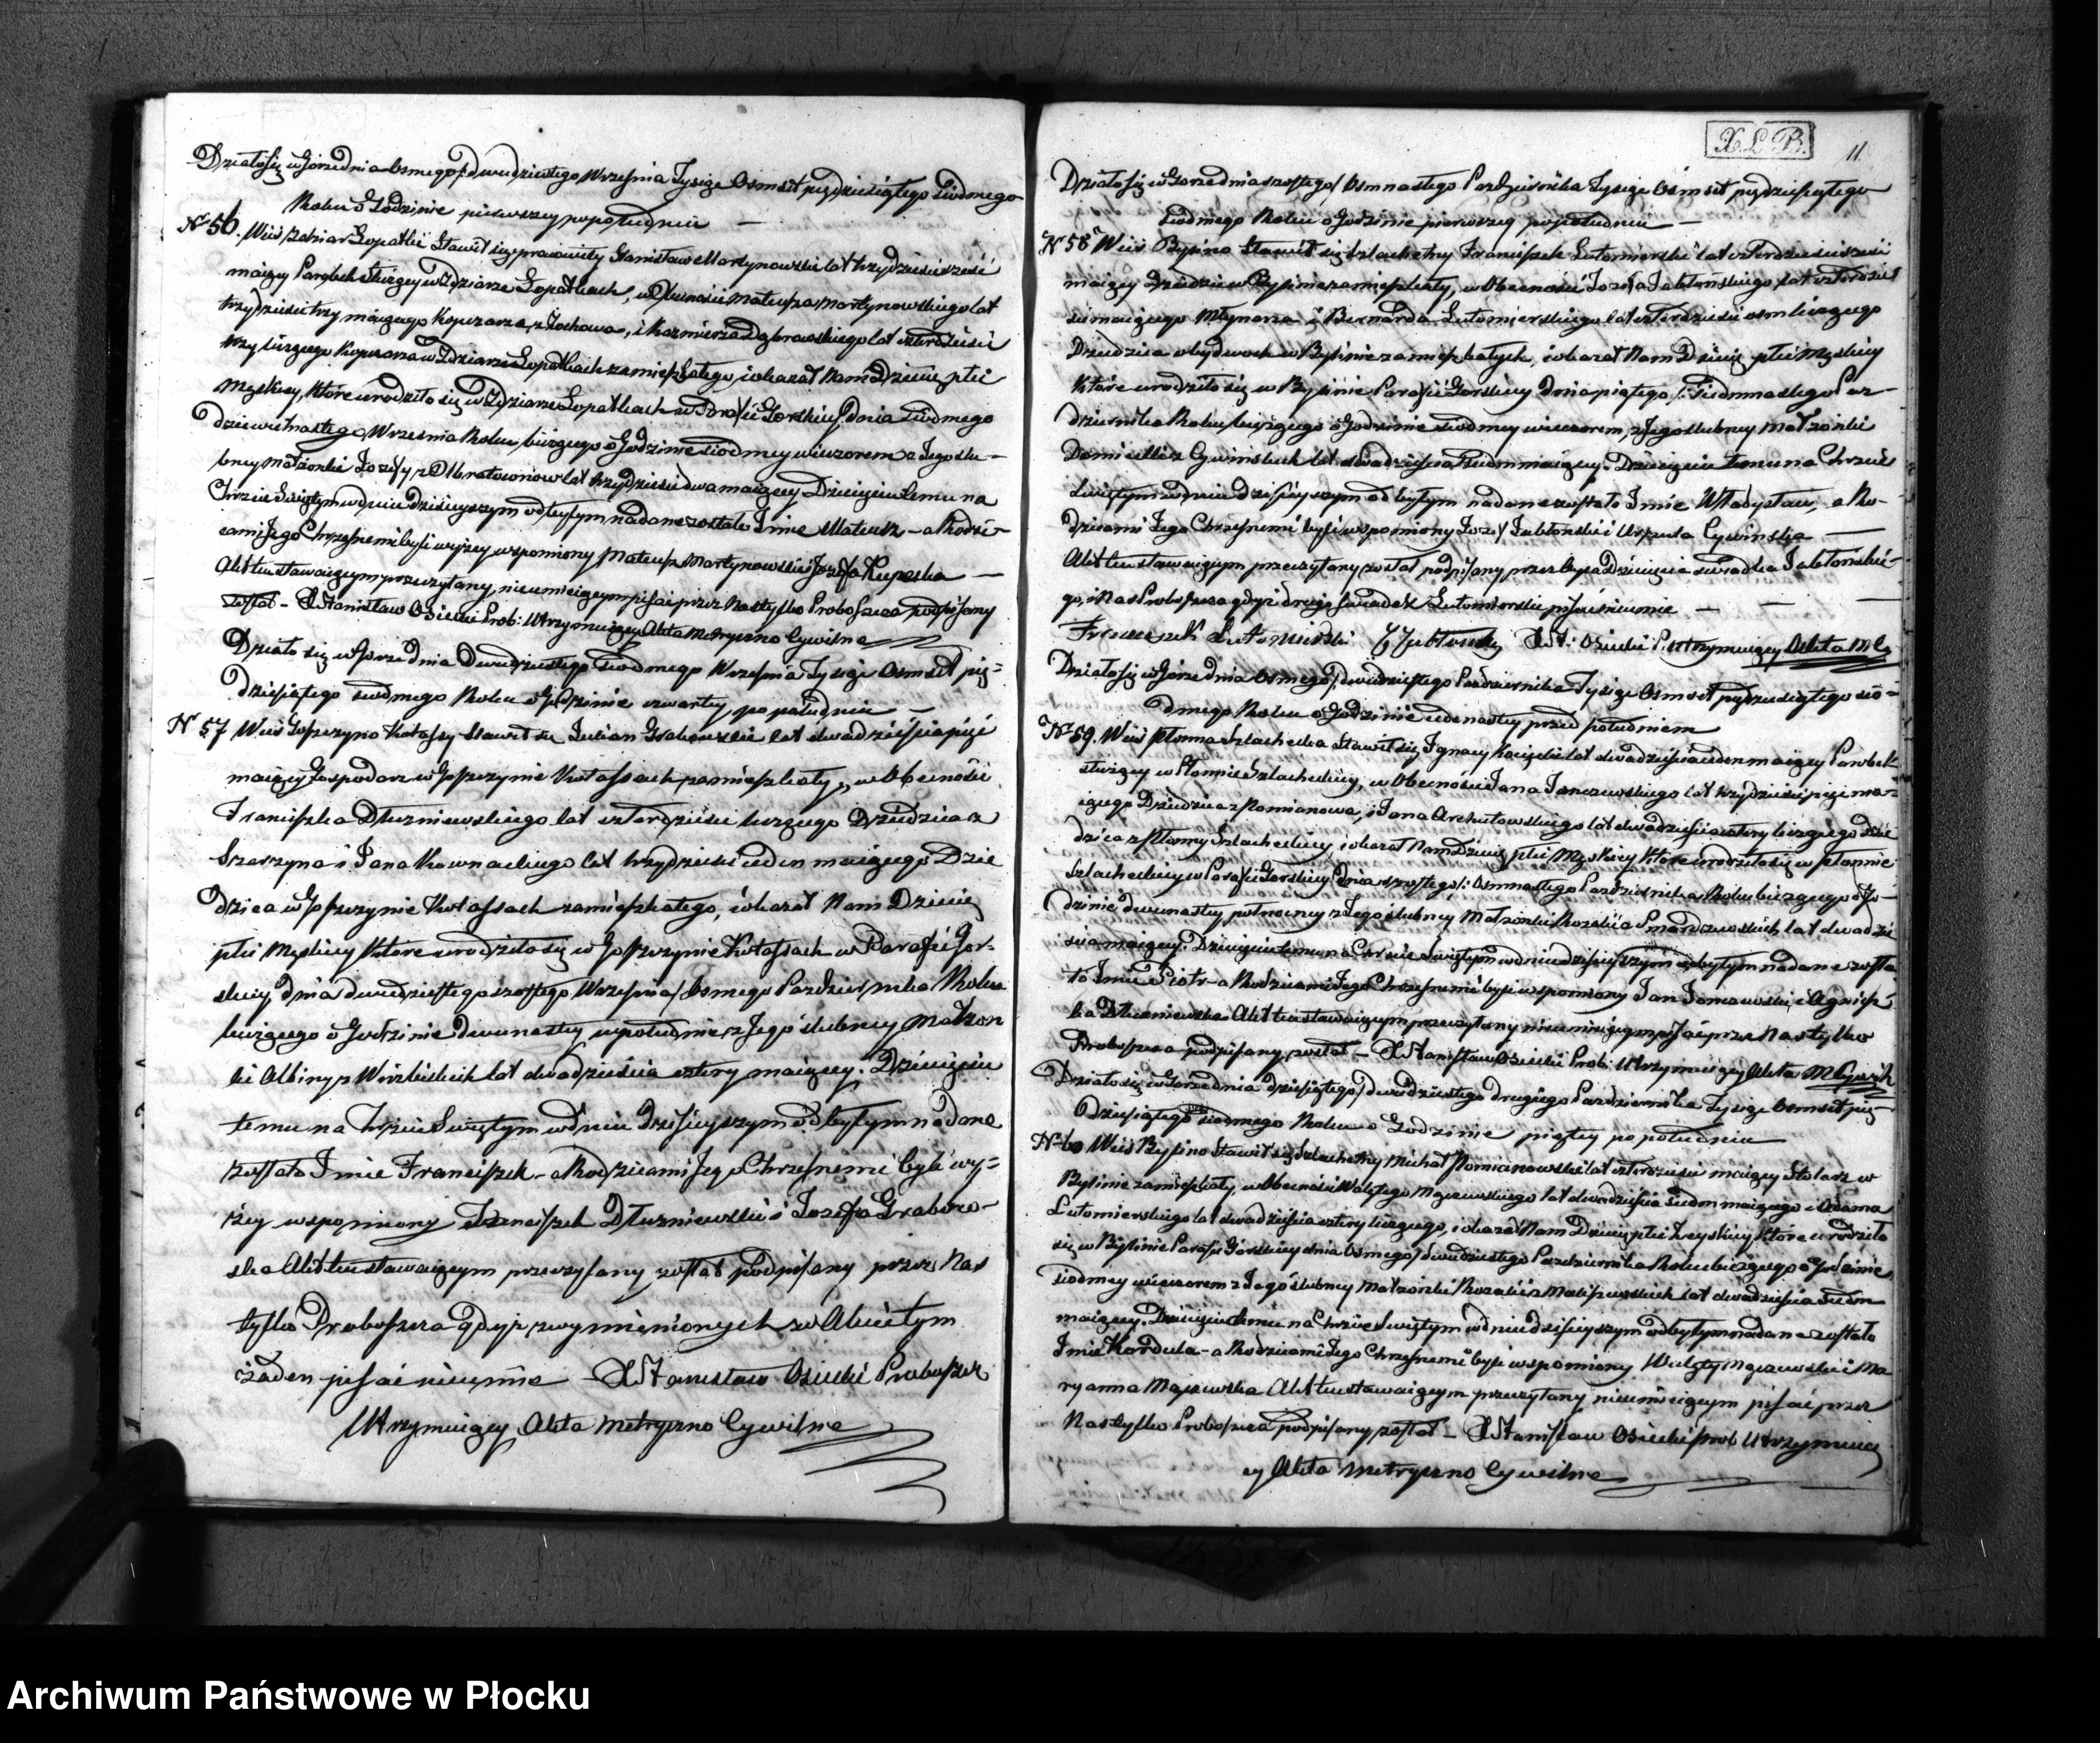 Działo się w Górze dnia osmego/dwudziestego Września Tysiąc Osmset pięćdziesiątego siódmego
Roku o Godzinie pierwszey popołudniu —
No 56. Wieś Zdziar Łopatki Stawił się pracowity Stanisław Martynowski lat trzydzieści sześć
maiący Parobek służący w Zdziarze Łopatkach, w Obecności Mateusza Martynowskiego lat
trzydzieści trzy maiącego Kopczarza z Żochowa, i Kazmierza Dąbrowskiego lat czterdzieści
trzy liczącego Kopczarza w Zdziarze Łopatkach zamieszkałego, i okazał Nam Dziecię płci
Męskiey, które urodziło się w Zdziarze Łopatkach w Parafii Gorskiey/dnia siódmego
dziewietnastego Wrzesnia Roku bieżącego o Godzinie siodmey wieczorem z Jego ślu-
bney małżonki Jozefy z lat trzydzieści dwa maiącey Dziecięciu temu na
Chrzcie Świętym w dniu dzisieyszym odbytym nadane zostało Imie Mateusz – a Rodzi-
cami Jego Chrzesnemi byli wyżey wspomiony Mateusz Martynowski i Jozefa —
Akt ten stawaiącym przeczytany, nieumieiącym pisać przez Nas tylko Proboszcza podpisany
został – X Stanisław Osiecki Prob: Utrzymuiący Akta Metryczno Cywilne
Działo się w Gorze dnia Dwudziestego siódmego Września Tysiąc Osmset pię-
dziesiątego siodmego Roku o Godzinie czwartey po południu —
No 57 Wieś Gosczyno Kotassy Stawił się Julian Grabowski lat dwadzieścia pięć
maiący Gospodarz w Gosczynie Kotassach zamieszkały, w Obecności
Franciszka Dłuzniewskiego lat czterdzieści liczącego Dziedzica z
Szarzyna i Jana Kownackiego lat trzydzieści ieden maiącego Dzie
dzica w Gosczynie Kotassach zamieszkałego, i okazał Nam Dziecię
płci Męskiey które urodziło się w Gosczynie Kotassach w Parafii Gor-
skiey, dnia dwudziestego szostego Września/Osmego Pazdziernika Roku
bieżącego o Godzinie Dwunastey w południe z Jego ślubney Małżon
ki Albiny z Wirzbickich lat dwadzieścia cztery maiącey. Dziecięciu
temu na Chrzcie Świętym w dniu Dzisieyszym odbytym nadane
zostało Imie Franciszek – a Rodzicami Jego Chrzesnemi byli wy-
żey wspomniony Franciszek Dłuzniewski i Jozefa Grabow-
ska Akt ten stawaiącym przeczytany został podpisany przez Nas
tylko Proboszcza gdyż z wymienionych w Akcie tym
żaden pisać nieumie – X Stanisław Osiecki Proboszcz
Utrzymuiący Akta Metryczno Cywilne
X.L.B. 11.
Działo się w Gorze dnia szostego/Osmnastego Pazdziernika Tysiąc Ośmset pięćdziesiątego
siodmego Roku o Godzinie pierwszey popołudniu —
No 58 Wieś Bysino Stawił się szlachetny Franciszek Lutomierski lat czterdzieści sześć
maiący Dziedzic w Bysinie zamieszkały, w Obecności Jozefa Jabłońskiego lat czterdzieś
ci maiącego Młynarza i Bernarda Lutomierskiego lat czterdzieści osm liczącego
Dziedzica obydwoch w Bysinie zamieszkałych, i okazał Nam Dziecię płci Męskiey
Które urodziło się w Bysinie Parafii Gorskiey dnia piątego/: Siedmnastego Paz-
dziernika Roku bieżącego o Godzinie siodmey wieczorem, z Jego ślubney Małżonki
Domicelli z Cywinskich lat dwadzieścia siedm maiącey. Dziecięciu temu na Chrzcie
Świętym w dniu dzisieyszym odbytym nadane zostało Imie Władysław, a Ro-
dzicami Jego Chrzesnemi byli wspomiony Jozef Jabłoński i Urszula Cywińska —
Akt ten stawaiącym przeczytany został podpisany przez Oyca Dziecięcia świadka Jabłońskie-
go, i Nas Proboszcza gdyż drugi świadek Lutomierski pisać nieumie — — —
Franciszek Lutomierski J Jabłonsky X St: Osiecki P. utrzymuiący Akta M C
Działo się w Górze dnia Osmego/dwudziestego Pazdziernika Tysiąc Osmset pięćdziesiątego sió-
dmego Roku o Godzinie iedenastey przed południem
No 59. Wieś Płonna Szlachecka Stawił się Ignacy Kaiszki lat dwadzieścia ieden maiący Parobek
służący w Płonnie Szlacheckiey, w Obecności Jana Janczewskiego lat trzydzieści pięć ma-
iącego Dziedzica z Pomianowa, i Jana Archutowskiego lat dwadzieścia cztery liczącego dzie
dzica z Płonny Szlacheckiey, i okazał Nam Dziecię płci Męskiey które urodziło się w Płonnie
Szlacheckiey w Parafii Gorskiey/dnia szostego/: Osmnastego Pazdziernika Roku bieżącego o Go-
dzinie dwunastey północney z Jego ślubney Małżonki Rozalii z lat dwadzie
ścia maiącey. Dziecięciu temu na Chrzcie Świętym w dniu dzisieyszym odbytym nadane zosta
ło Imie Piotr – a Rodzicami Jego Chrzesnemi byli wspomiony Jan Janczewski i Agniesz
ka Dłuzniewska Akt ten stawaiącym przeczytany nieumieiącym pisać przez Nas tylko
Proboszcza podpisany został – X Stanisław Osiecki Prob: Utrzymuiący Akta M Cywil
Działo się w Gorze dnia dziesiątego/dwudziestego drugiego Pazdziernika Tysiąc Osmset pię-
dziesiątego siodmego Roku o Godzinie piątey po południu
No 60 Wieś Bysino Stawił się Szlachetny Michał Pomianowski lat czterdzieści maiący Stolarz w
Bysinie zamieszkały, w Obecności Walętego Majewskiego lat dwadzieścia siedm maiącego i Adama
Lutomierskiego lat dwadzieścia cztery liczącego, i okazał Nam Dziecię płci Żeyskiey które urodziło
się w Bysinie Parafii Gorskiey dnia Osmego/dwudziestego Pazdziernika Roku bieżącego o Godzinie
siodmey wieczorem z Jego ślubney Małżonki Rozalii z Maliszewskich lat dwadzieścia siedm
maiącey. Dziecięciu temu na Chrzcie Świętym w dniu dzisieyszym odbytym nadane zostało
Imie Kordula – a Rodzicami Jego Chrzesnemi byli wspomiony Walęty Majewski i Ma
ryanna Majewska Akt ten stawaiącym przeczytany nieumieiącym pisać przez
Nas tylko Proboszcza podpisany został – X Stanisław Osiecki prob Utrzymuią
cy Akta Metryczno Cywilne
Archiwum Państwowe w Płocku